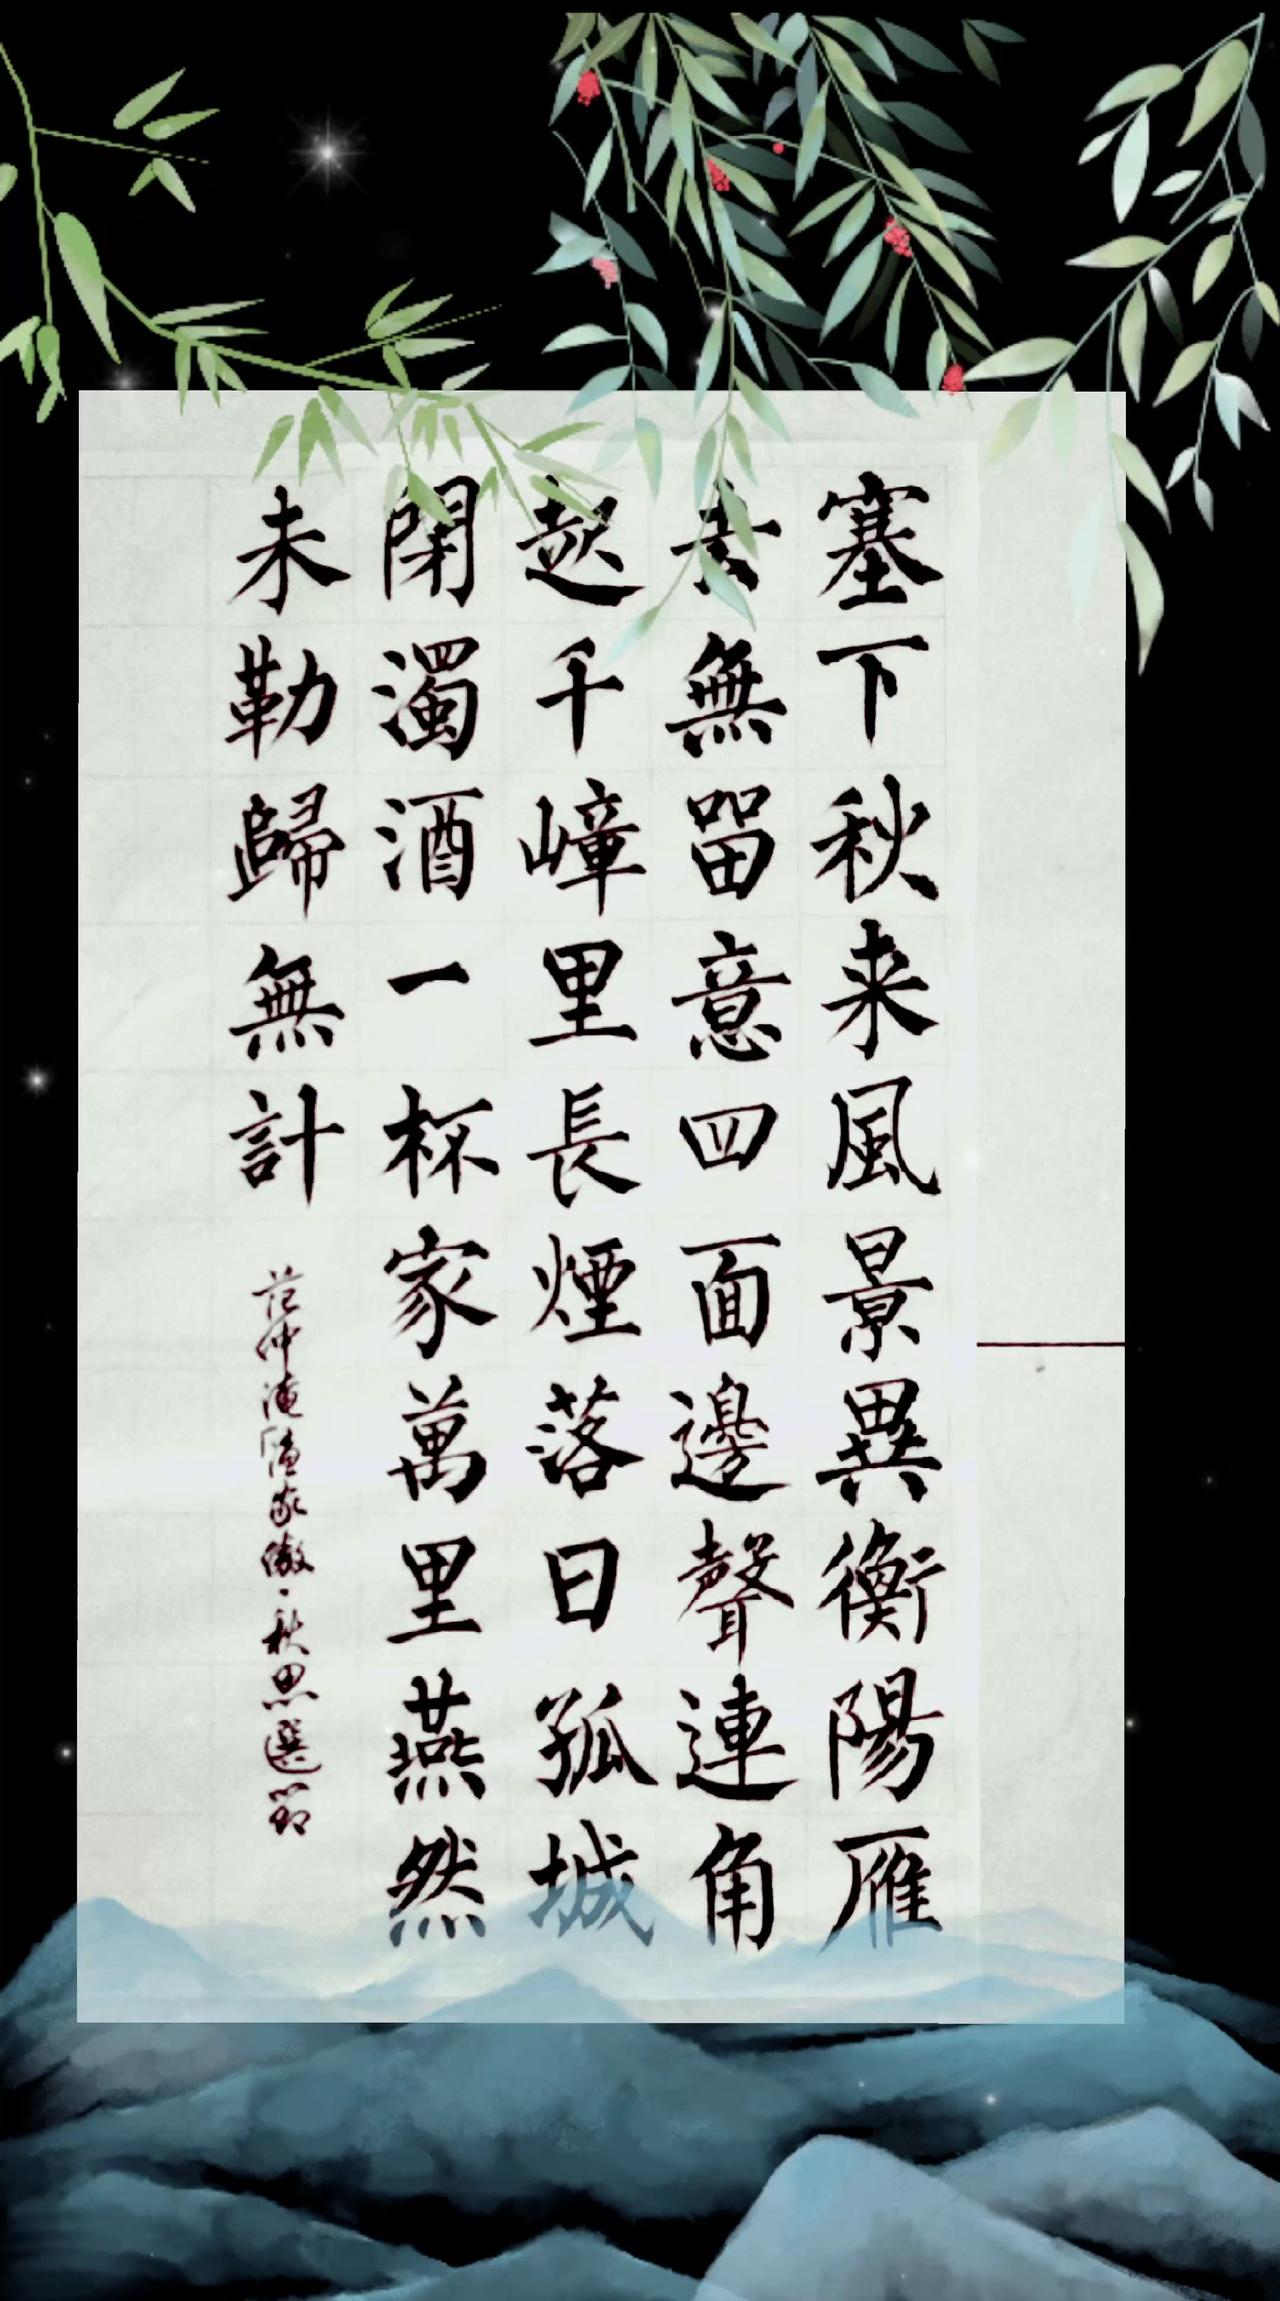 塞下秋来風景異衡陽雁
去無留意四面邊聲連角
起千嶂里長煙落日孤城
閉濁酒一杯家萬里燕然
未勒歸無計
范仲淹「漁家傲·秋思選節